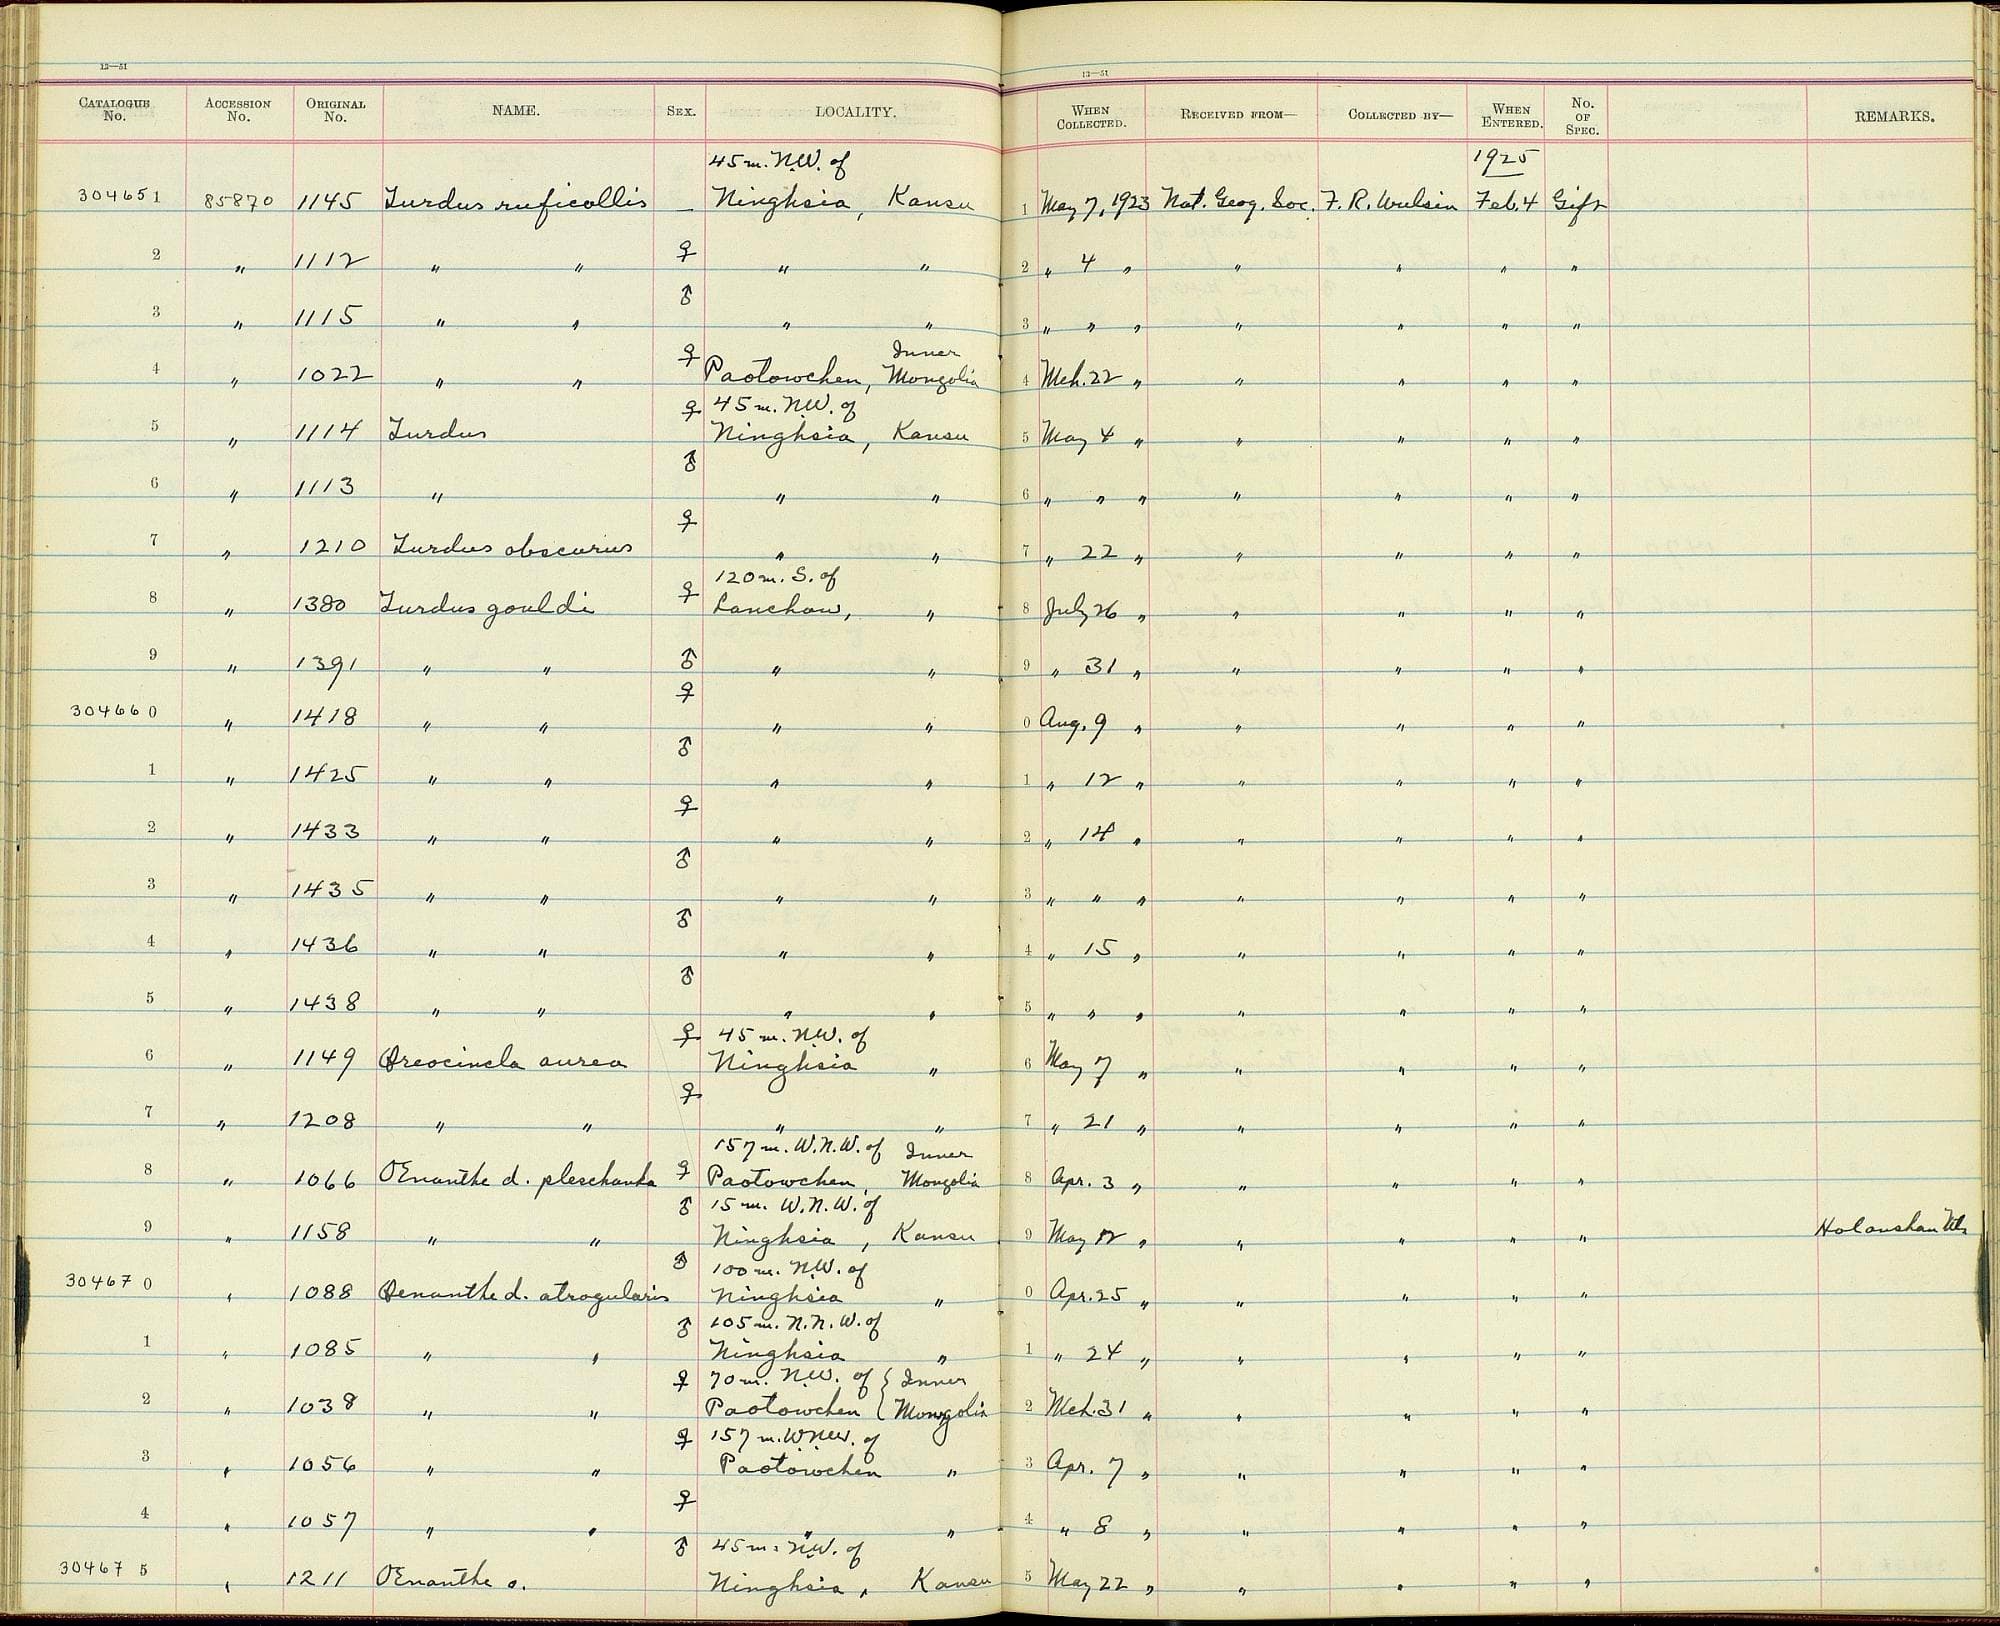 12—51
13—51
CATALOGUE No. ACCESSION No. ORIGINAL No. NAME. SEX. LOCALITY. WHEN COLLECTED. RECEIVED FROM— COLLECTED BY— WHEN ENTERED. No. OF SPEC. REMARKS.
45 m. N.W. of 1925
304651 85870 1145 Turdus ruficollis — Ninghsia, Kansu 1 May 7, 1923 Nat. Geog. Soc. F. R. Wulsin Feb. 4 Gift
2 " 1112 " " ♀ " " 2 " 4 " " " " "
3 " 1115 " " ♂ " " 3 " " " " " " "
Inner
4 " 1022 " " ♀ Paotowchen, Mongolia 4 Mch. 22 " " " " "
45 m. N.W. of
5 " 1114 Turdus ♀ Ninghsia, Kansu 5 May 4 " " " " "
6 " 1113 " ♂ " " 6 " " " " " " "
7 " 1210 Turdus obscurus ♀ " " 7 " 22 " " " " "
120 m. S. of
8 " 1380 Turdus gouldi ♀ Lanchow, " 8 July 26 " " " " "
9 " 1391 " " ♂ " " 9 " 31 " " " " "
304660 " 1418 " " ♀ " " 0 Aug. 9 " " " " "
1 " 1425 " " ♂ " " 1 " 12 " " " " "
2 " 1433 " " ♀ " " 2 " 14 " " " " "
3 " 1435 " " ♂ " " 3 " " " " " " "
4 " 1436 " " ♂ " " 4 " 15 " " " " "
5 " 1438 " " ♂ " " 5 " " " " " " "
45 m. N.W. of
6 " 1149 Oreocincla aurea ♀ Ninghsia " 6 May 7 " " " " "
7 " 1208 " " ♀ " " 7 " 21 " " " " "
157 m. W.N.W. of Inner
8 " 1066 OEnanthe d. pleschanka ♀ Paotowchen, Mongolia 8 Apr. 3 " " " " "
15 m. W.N.W. of
9 " 1158 " " ♂ Ninghsia, Kansu 9 May 12 " " " " " Holanshan Mts
100 m. N.W. of
304670 " 1088 Oenanthe d. atrogularis ♂ Ninghsia " 0 Apr. 25 " " " " "
105 m. N.N.W. of
1 " 1085 " " ♂ Ninghsia " 1 " 24 " " " " "
70 m. N.W. of { Inner
2 " 1038 " " ♀ Paotowchen Mongolia 2 Mch. 31 " " " " "
157 m. W.N.W. of
3 " 1056 " " ♀ Paotowchen " 3 Apr. 7 " " " " "
4 " 1057 " " ♀ " " 4 " 8 " " " " "
45 m. N.W. of
304675 " 1211 OEnanthe o. ♂ Ninghsia, Kansu 5 May 22 " " " " "